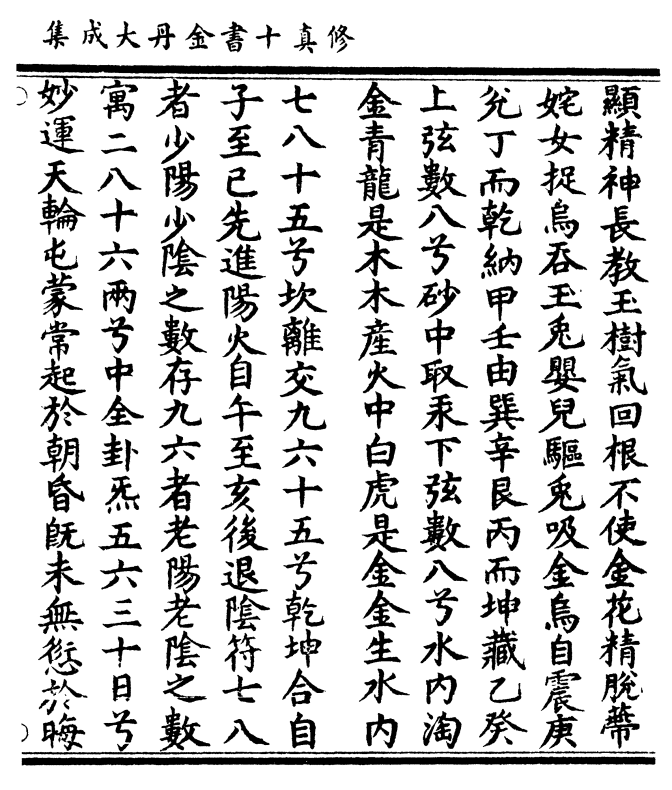 修真十書金丹大成集
顯精神長教玉樹氣回根不使金花精脫蔕
姹女捉烏吞玉兎嬰兒驅兎吸金烏自震庚
兊丁而乾納甲壬由巽辛艮丙而坤藏乙癸
上弦數八兮砂中取汞下弦數八兮水内淘
金青龍是木木産火中白虎是金金生水内
七八十五兮坎離交九六十五兮乾坤合自
子至巳先進陽火自午至亥後退陰符七八
者少陽少陰之數存九六者老陽老陰之數
寓二八十六兩兮中全卦炁五六三十日兮
妙運天輪屯蒙常起於朝昏旣未無愆於晦